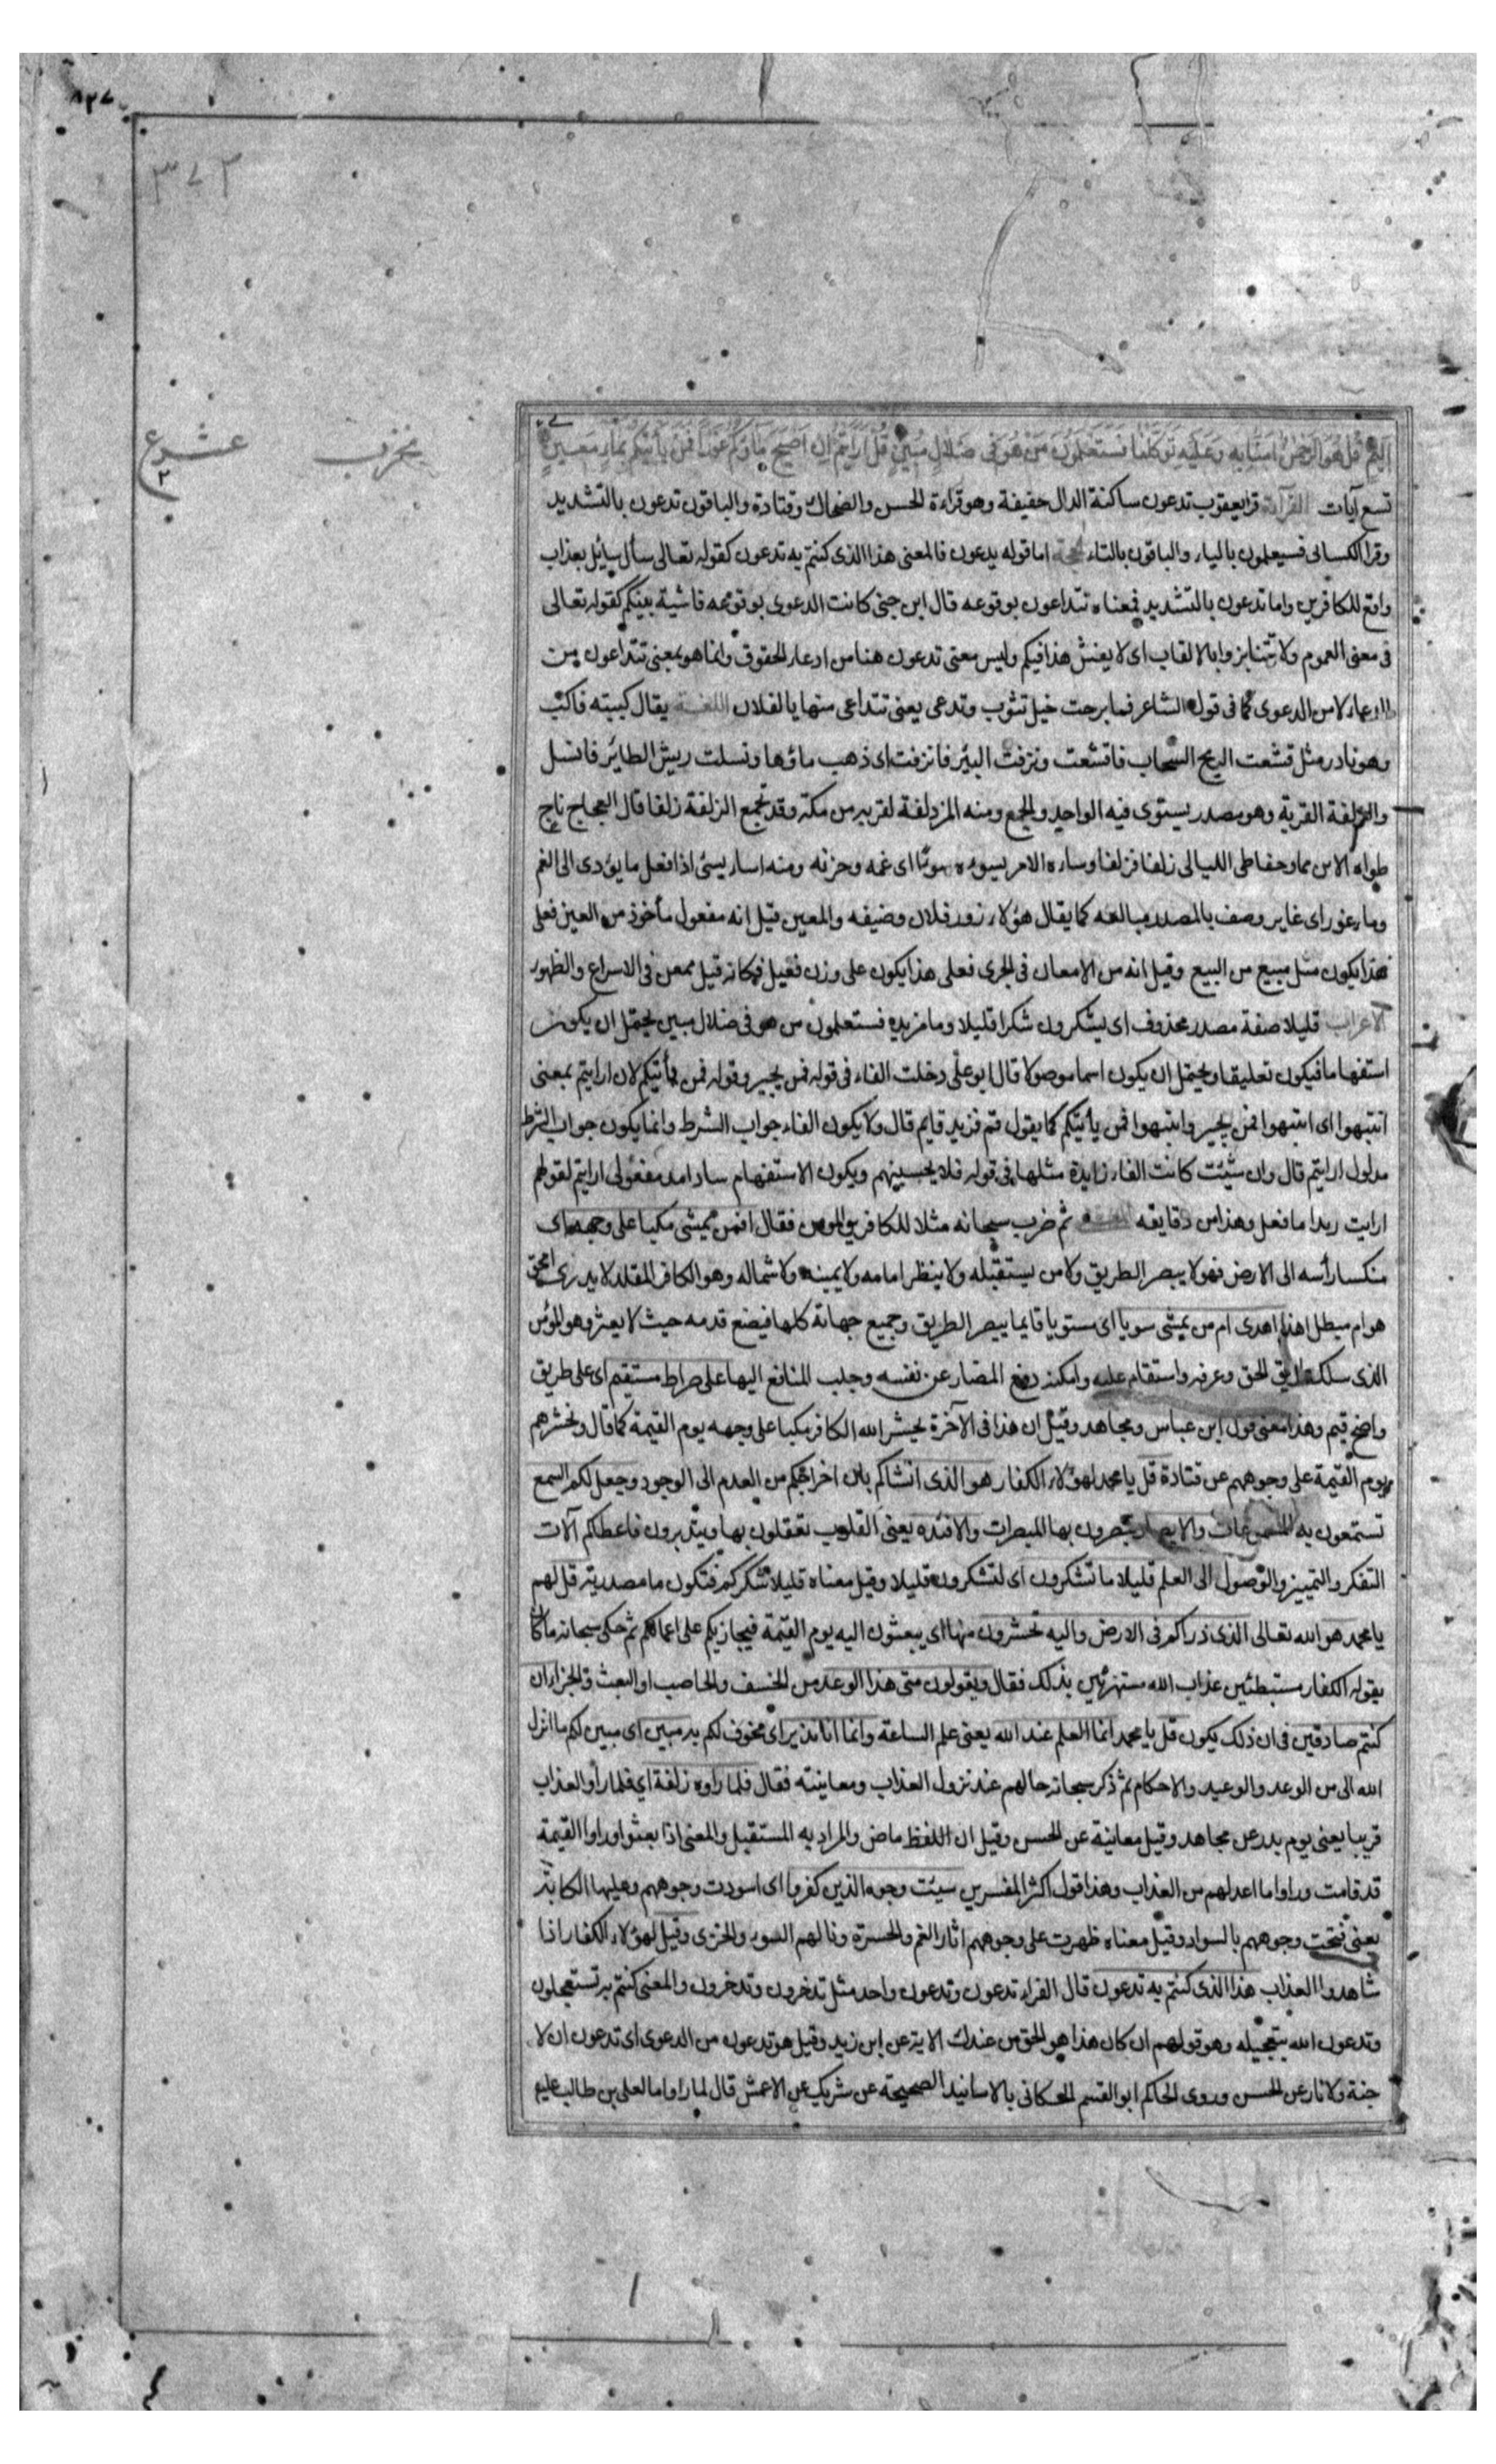 ٨٢٧
٣٧٢
عشوع
٢
اليم قل هو الرحمن امنا به وعليه توكلنا فستعلمون من هو في ضلال مبين قل ارايتم ان اصبح ماؤكم غورا فمن يأتيكم بماء معين
تسع آيات القرآءة قرا يعقوب تدعون ساكنة الدال خفيفة وهو قراءة الحسن والضحاك وقتادة والباقون تدعون بالتشديد
وقرا الكسائى فسيعلمون بالياء والباقون بالتاء الحجة اما قوله يدعون فالمعنى هذا الذى كنتم به تدعون كقوله تعالى سأل سائل بعذاب
واقع للكافرين واما تدعون بالتشديد فمعناه تتداعون بوقوعه قال ابن جنى كانت الدعوى بوقوعه فاشية بينكم كقوله تعالى
فى معنى العموم ولا تنابزوا بالالقاب اى لا يفش هذا فيكم وليس معنى تدعون هنا من ادعاء الحقوق وانما هو بمعنى تتداعون من
الدعاء لا من الدعوى كما فى قول الشاعر فما برحت خيل تثوب وتدعى يعنى تتداعى منها يا لفلان اللغة يقال كببته فاكب
وهو نادر مثل قشعت الريح السحاب فاقشعت ونزفت البئر فانزفت اى ذهب ماؤها ونسلت ريش الطائر فانسل
والزلفة القربة وهو مصدر يستوى فيه الواحد والجمع ومنه المزدلفة لقربه من مكة وقد تجمع الزلفة زلفا قال العجاج ناج
طواه الاين مما وجفا طى الليالى زلفا فزلفا وساءه الامر يسوءه سوءا اى غمه وحزنه ومنه اساء يسئ اذا فعل ما يؤدى الى الغم
وماء غور اى غاير وصف بالمصدر مبالغه كما يقال هؤلاء زور فلان وضيفه والمعين قيل انه مفعول مأخوذ من العين فعلى
هذا يكون مثل مبيع من البيع وقيل انه من الامعان فى الجرى فعلى هذا يكون على وزن فعيل فكانه قيل ممعن فى الاسراع والظهور
الاعراب قليلا صفة مصدر محذوف اى يشكرون شكرا قليلا وما مزيده فستعلمون من هو فى ضلال مبين يحتمل ان يكون
استفهاما فيكون تعليقا ويحتمل ان يكون اسما موصولا قال ابو على دخلت الفاء فى قوله فمن يجير وقوله فمن يأتيكم لان ارايتم بمعنى
انتبهوا اى انتبهوا فمن يجير وانتبهوا فمن يأتيكم كما يقول قم فزيد قايم قال ولا يكون الفاء جواب الشرط وانما يكون جواب الشرط
مدلول ارايتم قال وان شئت كانت الفاء زايدة مثلها فى قوله فلا يحسبنهم ويكون الاستفهام سادا مسد مفعولى ارايتم لقولهم
ارايت زيدا ما فعل وهذا من دقايقه ثم ضرب سبحانه مثلا للكافر والمومن فقال افمن يمشى مكبا على وجهه اى
منكسا رأسه الى الارض فهو لا يبصر الطريق ولا من يستقبله ولا ينظر امامه ولا يمينه ولا شماله وهو الكافر المقلد لا يدرى امحق
هو ام مبطل اهذا اهدى ام من يمشى سويا اى مستويا قايما يبصر الطريق وجميع جهاته كلها فيضع قدمه حيث لا يعثر وهو المؤمن
الذى سلك طريق الحق وعرفه واستقام عليه وامكنه دفع المضار عن نفسه وجلب المنافع اليها على صراط مستقيم اى على طريق
واضح قيم وهذا معنى قول ابن عباس ومجاهد وقيل ان هذا فى الآخرة يحشر الله الكافر مكبا على وجهه يوم القيمة كما قال ونحشرهم
يوم القيمة على وجوههم عن قتادة قل يا محمد لهؤلاء الكفار هو الذى انشاكم بان اخرجكم من العدم الى الوجود وجعل لكم السمع
تستمعون به المسموعات والابصار تبصرون بها المبصرات والافئدة يعنى القلوب تعقلون بها ويتدبرون فاعطاكم آلات
التفكر والتمييز والوصول الى العلم قليلا ما تشكرون اى لتشكرون قليلا وقيل معناه قليلا شكركم فتكون ما مصدرية قل لهم
يا محمد هو الله تعالى الذى ذراكم فى الارض واليه تحشرون منها اى يبعثون اليه يوم القيمة فيجازيكم على اعمالكم ثم حكى سبحانه ما كان
يقوله الكفار مستبطئين عذاب الله مستهزئين بذلك فقال ويقولون متى هذا الوعد من الخسف والحاصب او البعث والجزاء ان
كنتم صادقين فى ان ذلك يكون قل يا محمد انما العلم عند الله يعنى علم الساعة وانما انا نذير اى مخوف لكم به مبين اى مبين لكم ما انزل
الله الى من الوعد والوعيد والاحكام ثم ذكر سبحانه حالهم عند نزول العذاب ومعاينته فقال فلما راوه زلفة اى فلما رأوا العذاب
قريبا يعنى يوم بدر عن مجاهد وقيل معاينة عن الحسن وقيل ان اللفظ ماض والمراد به المستقبل والمعنى اذا بعثوا وراوا القيمة
قد قامت وراوا ما اعد لهم من العذاب وهذا قول اكثر المفسرين سيئت وجوه الذين كفروا اى اسودت وجوههم وعليها الكابة
يعنى قبحت وجوههم بالسواد وقيل معناه ظهرت على وجوههم اثار الغم والحسرة ونالهم السوء والخزى وقيل لهؤلاء الكفار اذا
شاهدوا العذاب هذا الذى كنتم به تدعون قال الفراء تدعون وتدعون واحد مثل تدخرون وتدخرون والمعنى كنتم به تستعجلون
وتدعون الله بتعجيله وهو قولهم ان كان هذا هو الحق من عندك الاية عن ابن زيد وقيل هو تدعون من الدعوى اى تدعون ان لا
جنة ولا نار عن الحسن وروى الحاكم ابو القسم الحسكانى بالاسانيد الصحيحة عن شريك عن الاعمش قال لما راوا ما لعلى بن طالب عليه